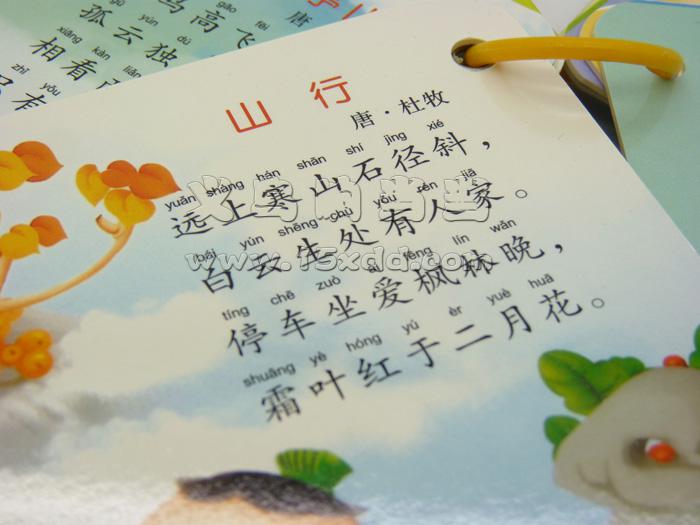 gū yún dú
孤云独
马高飞
xiāng kàn liǎn
相看
zhǐ yǒu
只有
唐
山行
唐·杜牧
yuǎn shàng hán shān shí jìng xié
远上寒山石径斜，
bái yún shēng chù yǒu rén jiā
白云生处有人家。
tíng chē zuò ài fēng lín wǎn
停车坐爱枫林晚，
shuāng yè hóng yú èr yuè huā
霜叶红于二月花。
www.15xdd.com